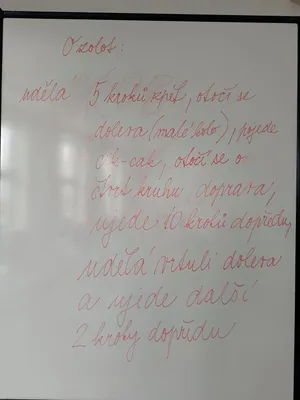 Ozobot:
udělá 5 kroků zpět, otočí se
doleva (malé kolo), pojede
cik-cak, otočí se o
čtvrt kruhu doprava,
ujede 10 kroků dopředu,
udělá vrtuli doleva
a ujede další
2 kroky dopředu